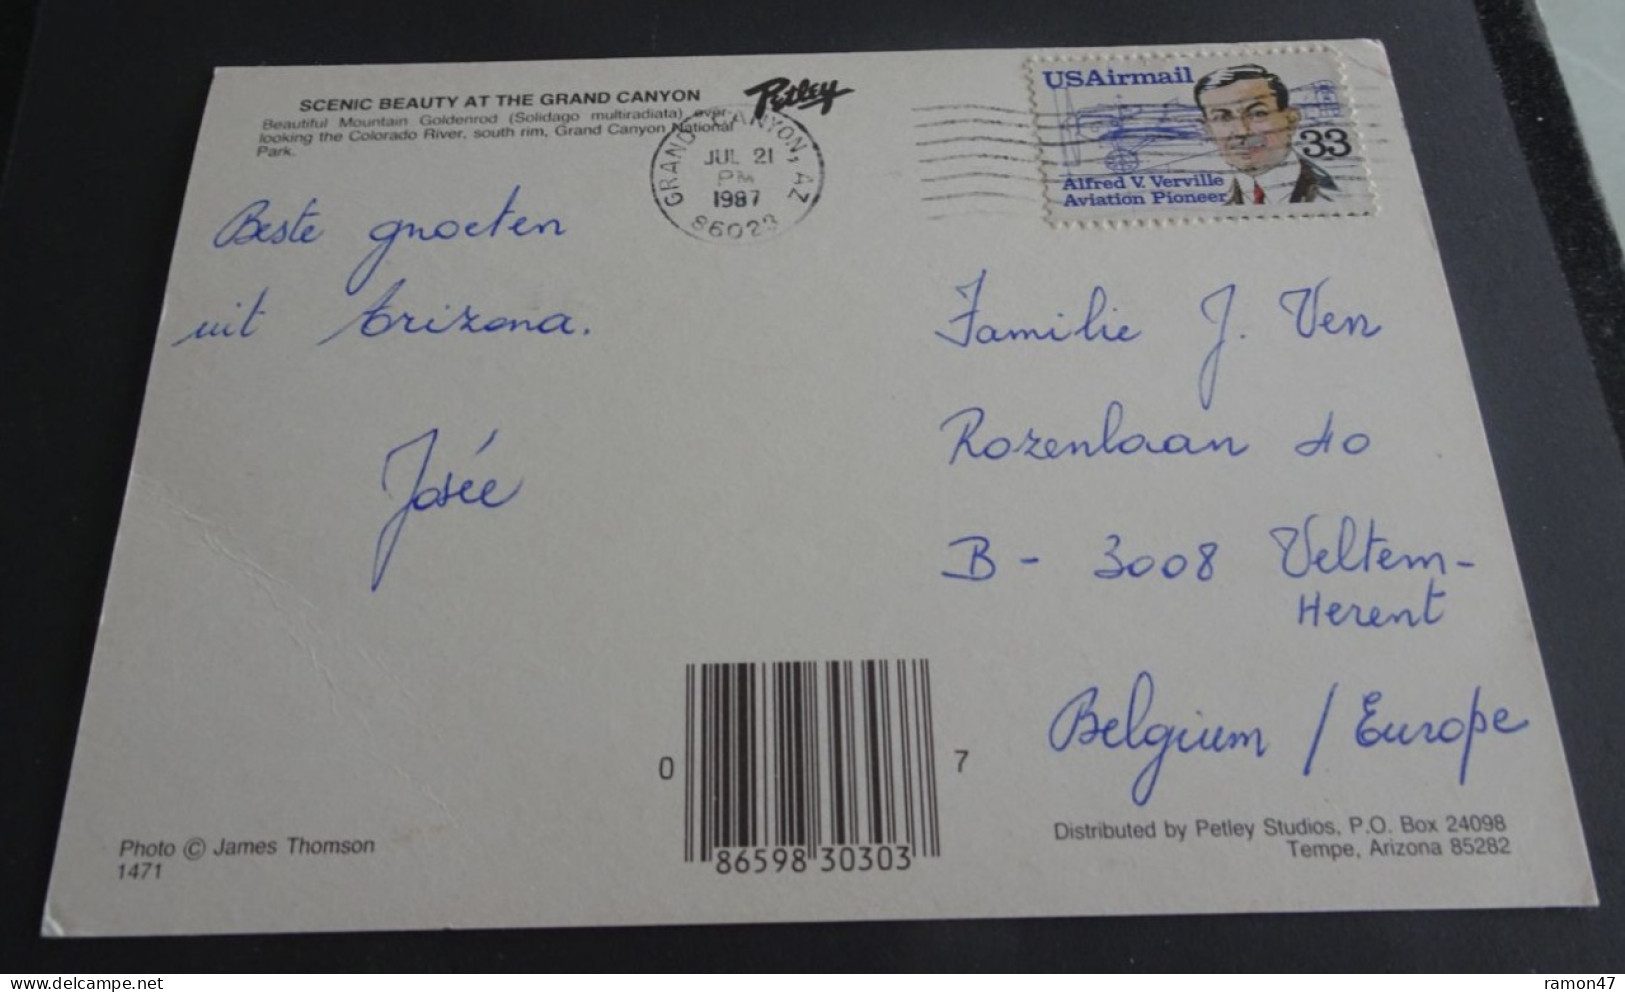 SCENIC BEAUTY AT THE GRAND CANYON
Beautiful Mountain Goldenrod (Solidago multiradiata) over-
looking the Colorado River, south rim, Grand Canyon National
Park.
Petley
GRAND CANYON, AZ
JUL 21
PM
1987
86023
USAirmail
33
Alfred V. Verville
Aviation Pioneer
Beste groeten
uit Arizona.
Josée
Familie J. Ven
Rozenlaan 40
B - 3008 Veltem-
Herent
Belgium / Europe
0
7
86598 30303
Photo © James Thomson
1471
Distributed by Petley Studios, P.O. Box 24098
Tempe, Arizona 85282
ramon47